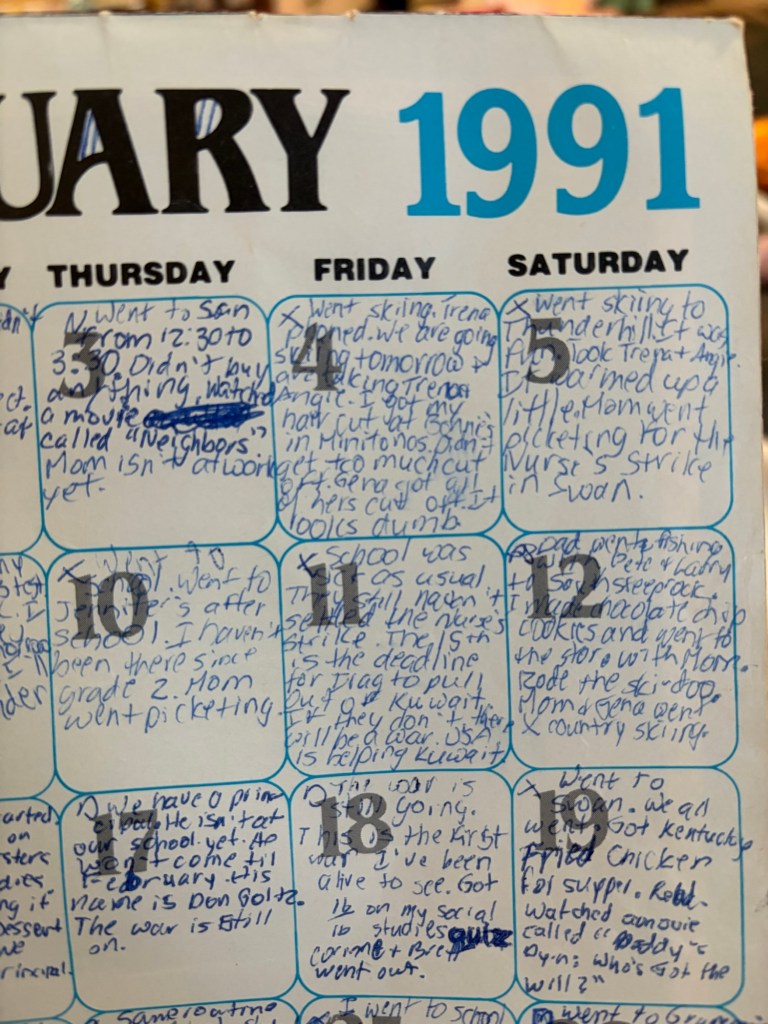 UARY 1991
Y THURSDAY FRIDAY SATURDAY
3
N Went to Swan
from 12:30 to
3:30. Didn't buy
anything. Watched
a movie
called "Neighbors"
Mom isn't at work
yet.
4
X Went skiing. Trena
phoned. we are going
skiing tomorrow +
are taking Trena +
Angie. I got my
hair cut at Bennie's
in Minitonas. Didn't
get too much cut
off. Gena got all
of hers cut off. It
looks dumb.
5
X Went skiing to
Thunderhill. It was
fun. Took Trena + Angie.
It warmed up a
little. Mom went
picketing for the
Nurse's Strike
in Swan.
10
X Went to
school. Went to
Jennifer's after
school. I haven't
been there since
grade 2. Mom
went picketing.
11
X School was
as usual.
They still haven't
settled the nurse's
strike. The 15th
is the deadline
for Iraq to pull
out of Kuwait.
If they don't, there
will be a war. USA
is helping Kuwait.
12
Dad went fishing
w/ Pete & Larry
to Steeprock.
I made chocolate chip
cookies and went to
the store with Mom.
Rode the ski-doo.
Mom & Gena went
X country skiing.
17
N We have a prin
cipal. He isn't at
our school yet. He
won't come til
February. His
name is Don Goltz.
The war is still
on.
18
N The war is
still going.
This is the first
war I've been
alive to see. Got
16/16 on my social
studies quiz
Corinne + Brett
went out.
19
X Went to
Swan. We all
went. Got Kentucky
Fried Chicken
for supper.
Watched a movie
called "Daddy's
Dyin; Who's Got the
Will?"
arted
on
sters
ng if
Dessert
we
rincipal.
der
a Same routine
I went to school
went to